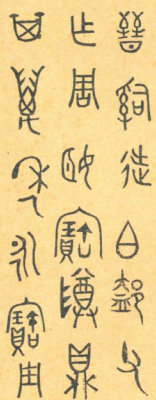 晉𤔲徒白䣄父
乍周姬寶𬯚鼎
其萬年永寶用